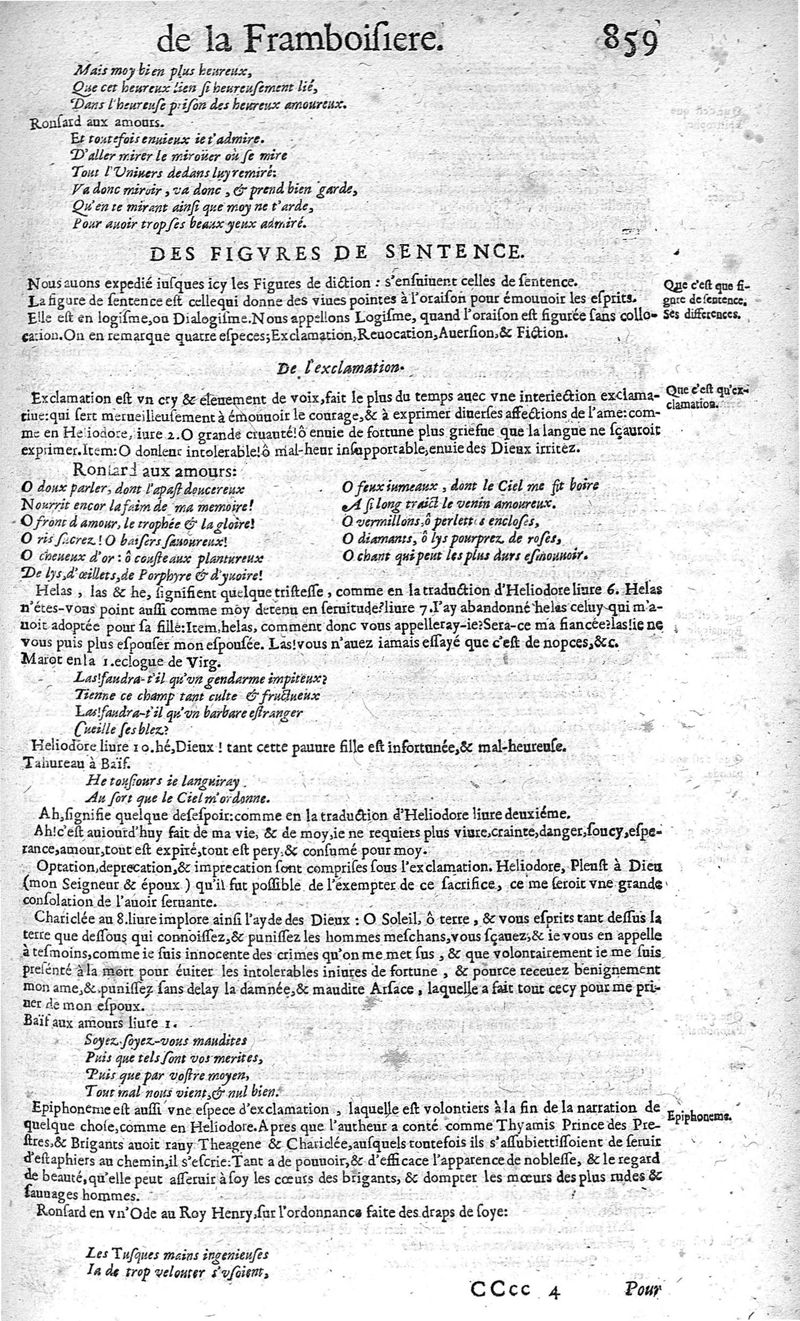 de la Framboiſiere. 859
Mais moy bien plus heureux,
Que cet heureux lien ſi heureuſement lié,
Dans l'heureuſe priſon des heureux amoureux.
Ronſard aux amours.
Et toutefois enuieux ie t'admire.
D'aller mirer le miroüer où ſe mire
Tout l'Vniuers dedans luy remiré:
Va donc miroir, va donc, & prend bien garde,
Qu'en te mirant ainſi que moy ne t'arde,
Pour auoir trop ſes beaux yeux admiré.
DES FIGVRES DE SENTENCE.
Nous auons expedié iuſques icy les Figures de diction : s'enſuiuent celles de ſentence.
La figure de ſentence eſt celle qui donne des viues pointes à l'oraiſon pour émouuoir les eſprits.
Elle eſt en logiſme, ou Dialogiſme. Nous appellons Logiſme, quand l'oraiſon eſt figurée ſans collo-
cation. On en remarque quatre eſpeces; Exclamation, Reuocation, Auerſion, & Fiction.
Que c'eſt que fi-
gure de ſentence.
Ses differences.
De l'exclamation.
Exclamation eſt vn cry & éſleuement de voix, fait le plus du temps auec vne interiection exclama-
tiue: qui ſert merueilleuſement à émouuoir le courage, & à exprimer diuerſes affections de l'ame: com-
me en Heliodore, liure 2. O grande cruauté! ô enuie de fortune plus griefue que la langue ne ſçauroit
exprimer. Item: O douleur intolerable! ô mal-heur inſupportable, enuie des Dieux irritez.
Que c'eſt qu'ex-
clamation.
Ronſard aux amours:
O doux parler, dont l'apaſt doucereux
Nourrit encor la faim de ma memoire!
O front d'amour, le trophée & la gloire!
O ris ſucrez! O baiſers ſauoureux!
O cheueux d'or: ô couſteaux plantureux
De lys, d'œillets, de Porphyre & d'yuoire!
O feux iumeaux, dont le Ciel me fit boire
A ſi long traict le venin amoureux.
O vermillons, ô perlettes encloſes,
O diamants, ô lys pourprez de roſes,
O chant qui peut les plus durs eſmouuoir.
Helas, las & he, ſignifient quelque triſteſſe, comme en la traduction d'Heliodore liure 6. Helas
n'étes-vous point auſſi comme moy detenu en ſeruitude? liure 7. I'ay abandonné helas celuy qui m'a-
uoit adoptée pour ſa fille: Item, helas, comment donc vous appelleray-ie? Sera-ce ma fiancée? las! ie ne
vous puis plus eſpouſer mon eſpouſée. Las! vous n'auez iamais eſſayé que c'eſt de nopces, &c.
Marot en la 1. eclogue de Virg.
Las! faudra-t'il qu'vn gendarme impiteux?
Tienne ce champ tant culte & fructueux
Las! faudra-t'il qu'vn barbare eſtranger
Cueille ſes blez?
Heliodore liure 10. hé, Dieux! tant cette pauure fille eſt infortunée, & mal-heureuſe.
Tahureau à Baïf.
He touſiours ie languiray
Au ſort que le Ciel m'ordonne.
Ah, ſignifie quelque deſeſpoir: comme en la traduction d'Heliodore liure deuxiéme.
Ah! c'eſt auiourd'huy fait de ma vie, & de moy, ie ne requiers plus viure, crainte, danger, ſoucy, eſpe-
rance, amour, tout eſt expiré, tout eſt pery, & conſumé pour moy.
Optation, deprecation, & imprecation ſont compriſes ſous l'exclamation. Heliodore, Pleuſt à Dieu
(mon Seigneur & époux) qu'il fut poſſible de l'exempter de ce ſacrifice, ce me ſeroit vne grande
conſolation de l'auoir ſeruante.
Chariclée au 8. liure implore ainſi l'ayde des Dieux : O Soleil, ô terre, & vous eſprits tant deſſus la
terre que deſſous qui connoiſſez, & puniſſez les hommes meſchans, vous ſçauez, & ie vous en appelle
à teſmoins, comme ie ſuis innocente des crimes qu'on me met ſus, & que volontairement ie me ſuis
preſenté à la mort pour éuiter les intolerables iniures de fortune, & pource receuez benignement
mon ame, & puniſſez ſans delay la damnée, & maudite Arſace, laquelle a fait tout cecy pour me pri-
uer de mon eſpoux.
Baïf aux amours liure 1.
Soyez, ſoyez-vous maudites
Puis que tels ſont vos merites,
Puis que par voſtre moyen,
Tout mal nous vient, & nul bien.
Epiphoneme eſt auſſi vne eſpece d'exclamation, laquelle eſt volontiers à la fin de la narration de
quelque choſe, comme en Heliodore. Apres que l'autheur a conté comme Thyamis Prince des Pre-
ſtres, & Brigants auoit rauy Theagene & Chariclée, auſquels toutefois ils s'aſſubiettiſſoient de ſeruir
d'eſtaphiers au chemin, il s'eſcrie: Tant a de pouuoir, & d'efficace l'apparence de nobleſſe, & le regard
de beauté, qu'elle peut aſſeruir à ſoy les cœurs des brigants, & dompter les mœurs des plus rudes &
ſauuages hommes.
Epiphoneme.
Ronſard en vn'Ode au Roy Henry, ſur l'ordonnance faite des draps de ſoye:
Les Tuſques mains ingenieuſes
Ia de trop velouter s'vſoient,
CCcc 4 Pour